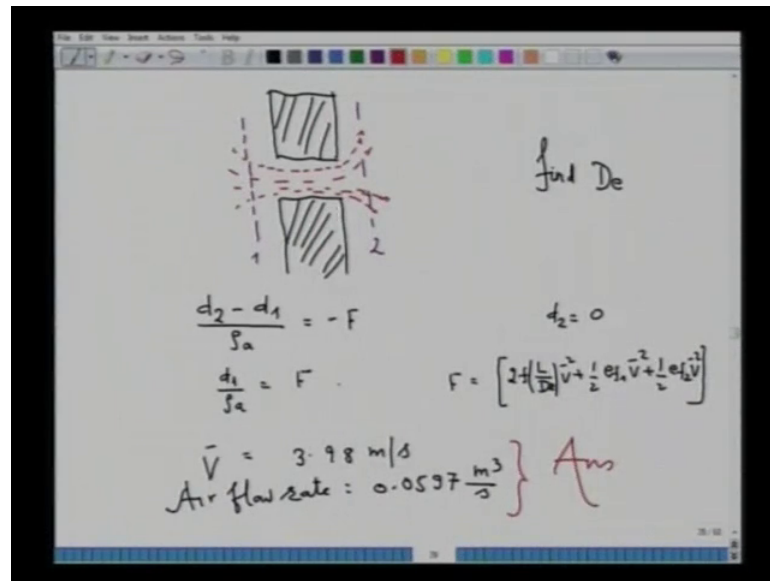 File Edit View Insert Actions Tools Help
find De
1
2
d₂ - d₁ / ρₐ = - F
d₂ = 0
d₁ / ρₐ = F
F = [2f(L/De)V̄² + 1/2 ef₁ V̄² + 1/2 ef₂ V̄²]
V̄ = 3.98 m/s
Air flow rate = 0.0597 m³/s } Ans